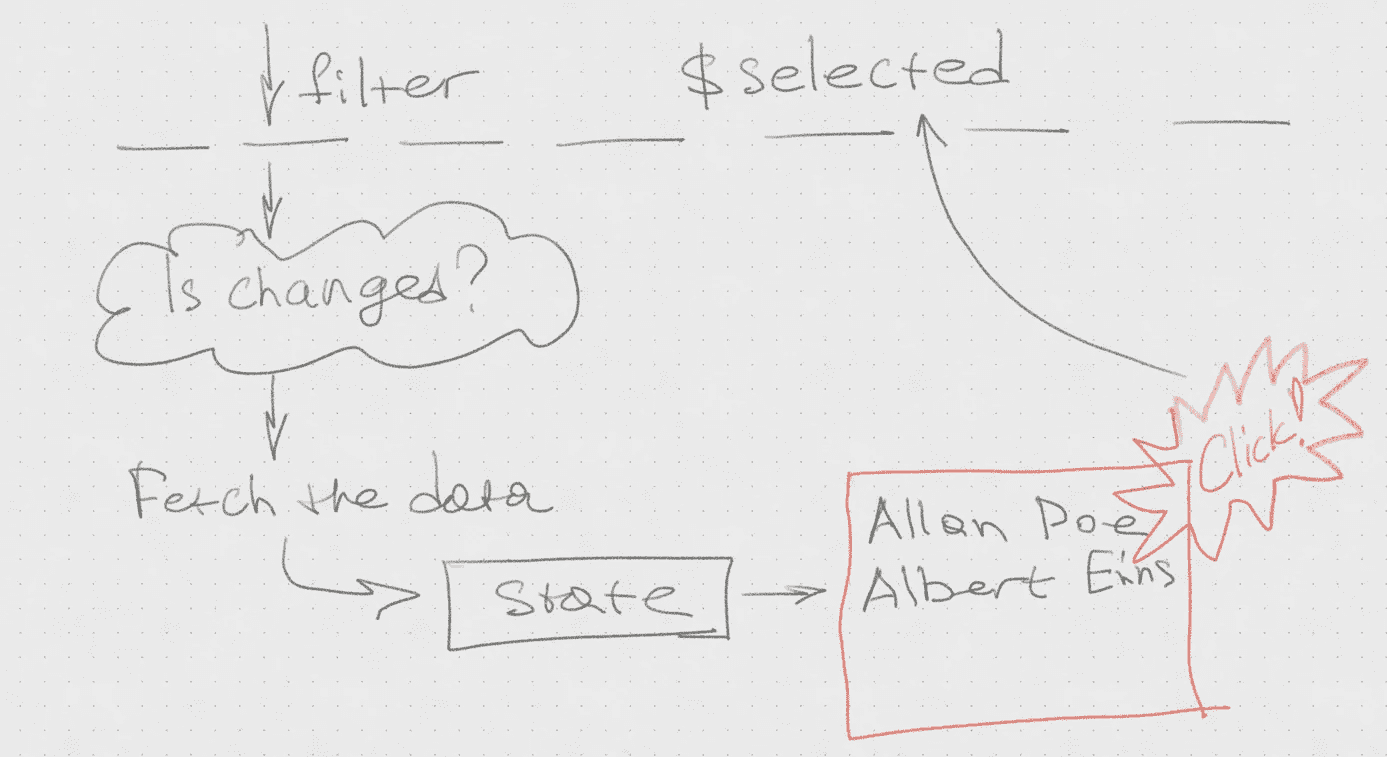 filter
$selected
Is changes?
Fetch the data
State
Click!
Allan Poe
Albert Eins